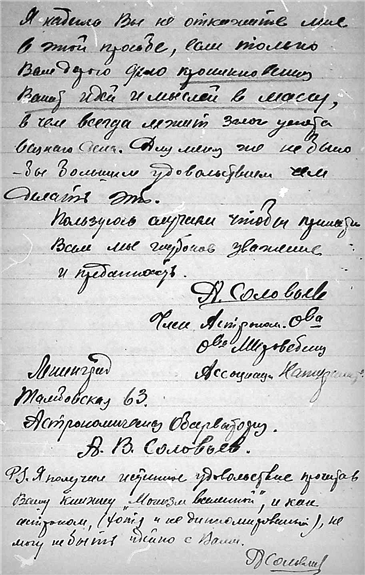 Я надеюсь Вы не откажите мне
в этой просьбе, если только
Вам дорого дело проникновения
Ваших идей и мыслей в массу,
в чем всегда лежит залог успеха
всякаго дела. Для меня же не было
-бы большим удовольствием чем
сделать это.
Пользуюсь случаем чтобы принести
Вам мое глубокое уважение
и преданность.
А. Соловьев
Член Астроном. О-ва
О-ва Мироведения
Ассоциации Натуралистов
Ленинград
Тамбовская 63.
Астрономическая Обсерватория.
А. В. Соловьев.
P.S. Я получил истинное удовольствие прочитав
Вашу книжку "Монизм вселенной", и как
астроном, (хотя и не дипломированный), не
могу не быть с Вами.
А Соловьев